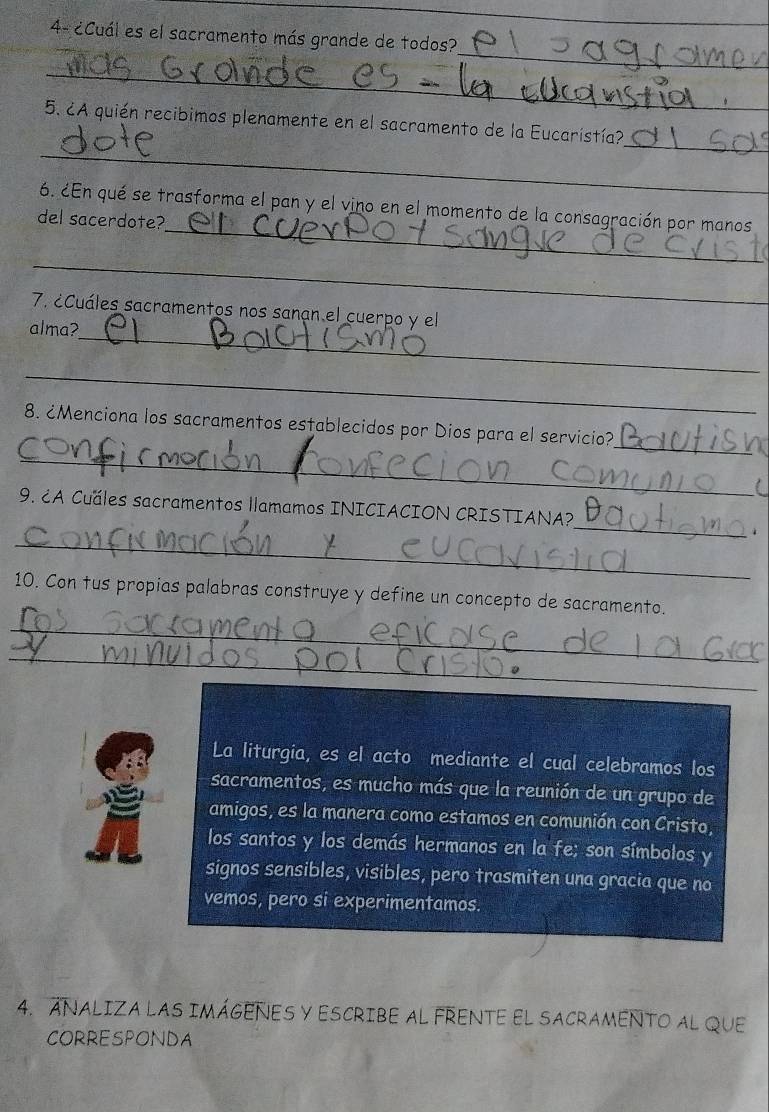 4- ¿Cuál es el sacramento más grande de todos? el sagramen
mas Grande es - la eucaristia.
5. ¿A quién recibimos plenamente en el sacramento de la Eucaristía? al sas
dote
6. ¿En qué se trasforma el pan y el vino en el momento de la consagración por manos
del sacerdote? el cuerpo y sangre de crist
7. ¿Cuáles sacramentos nos sanan el cuerpo y el
alma? el Bactismo
8. ¿Menciona los sacramentos establecidos por Dios para el servicio? Bautism
confirmación confecion comunio
9. ¿A Cuáles sacramentos llamamos INICIACION CRISTIANA? Bautismo.
confirmación y eucaristia
10. Con tus propias palabras construye y define un concepto de sacramento.
ros sacramenta eficase de la Grac
y minuidos pol Cristo.
La liturgia, es el acto mediante el cual celebramos los
sacramentos, es mucho más que la reunión de un grupo de
amigos, es la manera como estamos en comunión con Cristo,
los santos y los demás hermanos en la fe; son símbolos y
signos sensibles, visibles, pero trasmiten una gracia que no
vemos, pero si experimentamos.
4. ANALIZA LAS IMÁGENES Y ESCRIBE AL FRENTE EL SACRAMENTO AL QUE
CORRESPONDA